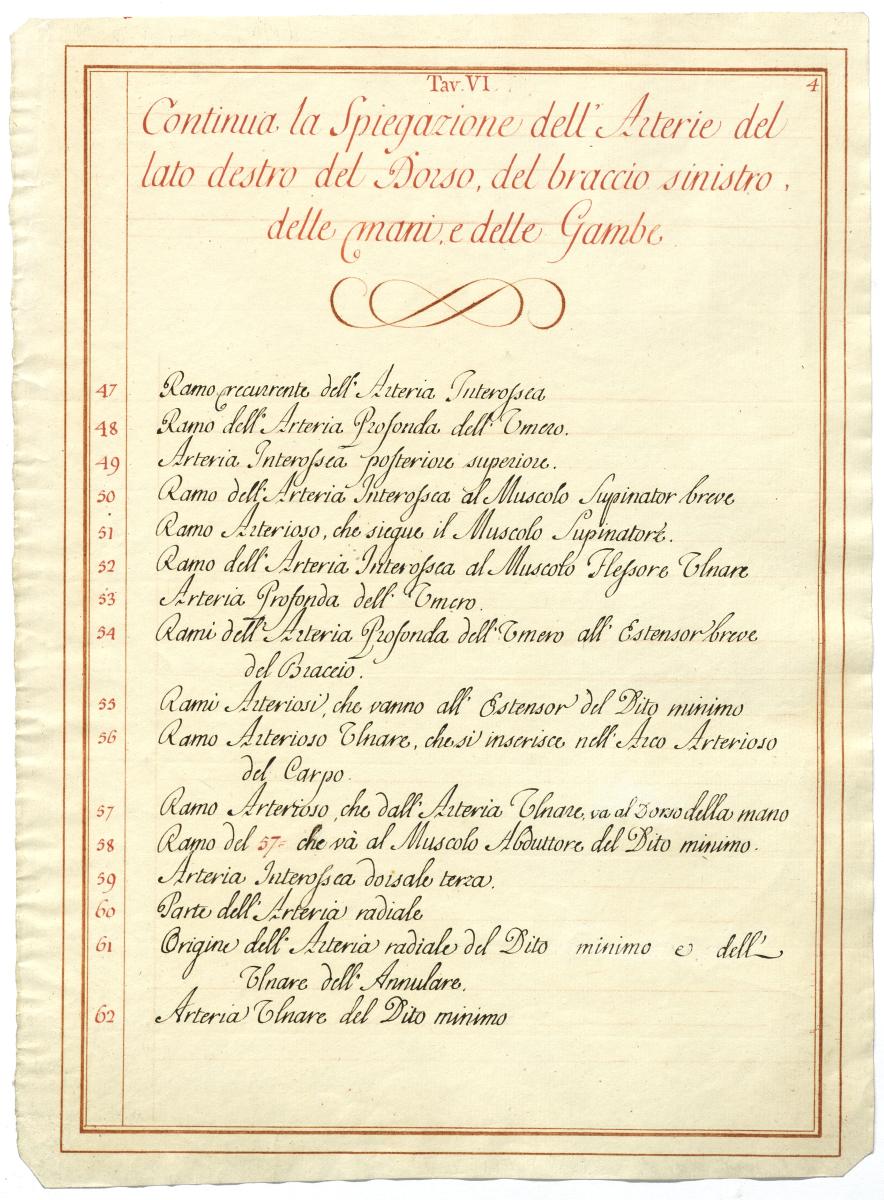 Tav. VI. 4
Continua la Spiegazione dell' Arterie del
lato destro del Dorso, del braccio sinistro,
delle mani, e delle Gambe
47 Ramo recurrente dell' Arteria Interossea
48 Ramo dell' Arteria Profonda dell' Umero.
49 Arteria Interossea posteriore superiore.
50 Ramo dell' Arteria Interossea al Muscolo Supinator breve
51 Ramo Arterioso, che siegue il Muscolo Supinatore.
52 Ramo dell' Arteria Interossea al Muscolo Flessore Ulnare
53 Arteria Profonda dell' Umero.
54 Rami dell' Arteria Profonda dell' Umero all' Estensor breve
del Braccio.
55 Rami Arteriosi, che vanno all' Estensor del Dito minimo
56 Ramo Arterioso Ulnare, che si inserisce nell' Arco Arterioso
del Carpo.
57 Ramo Arterioso, che dall' Arteria Ulnare, va al Dorso della mano
58 Ramo del 57= che và al Muscolo Abduttore del Dito minimo.
59 Arteria Interossea dorsale terza.
60 Parte dell' Arteria radiale
61 Origine dell' Arteria radiale del Dito minimo e dell'
Ulnare dell' Annulare.
62 Arteria Ulnare del Dito minimo